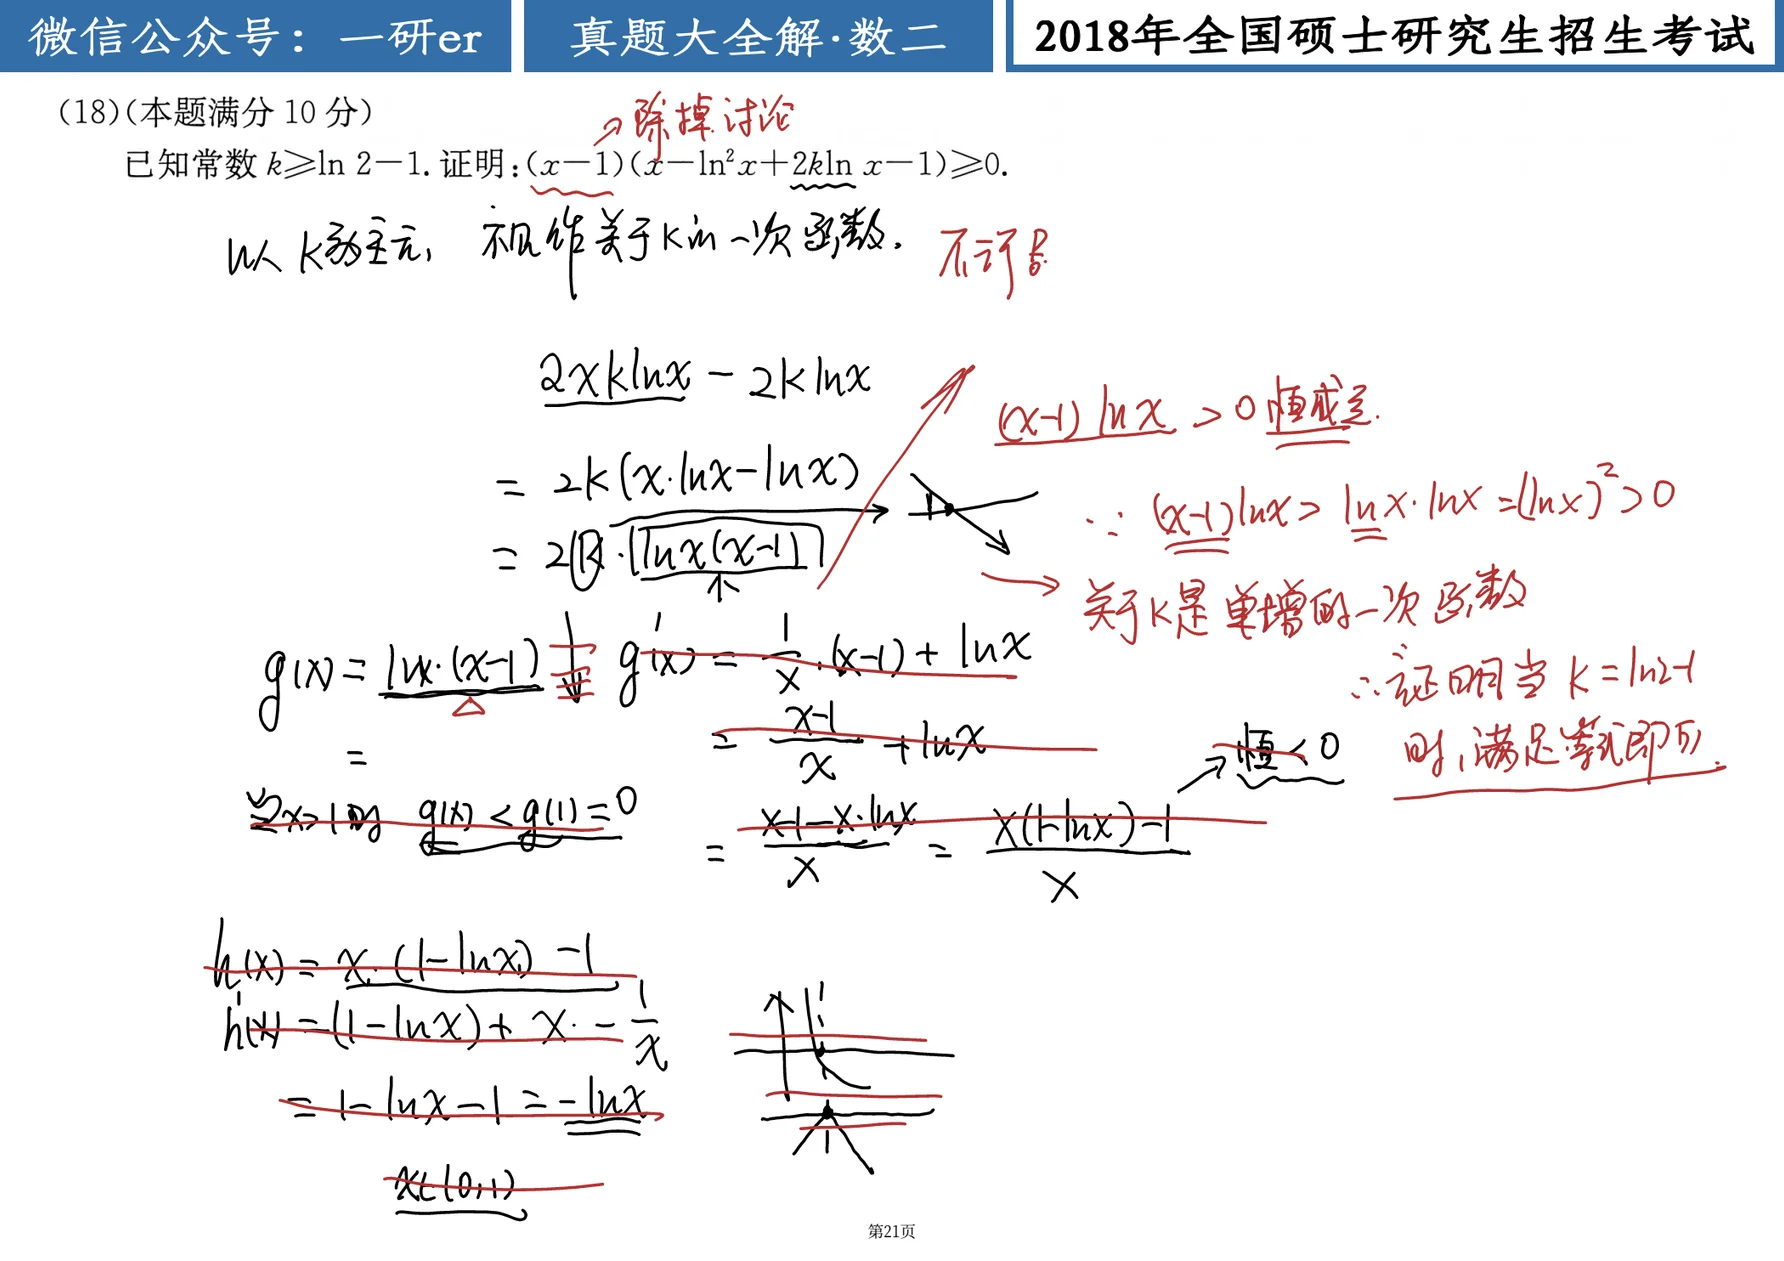 微信公众号：一研er
真题大全解·数二
2018年全国硕士研究生招生考试
(18)(本题满分 10 分)
→除掉讨论
已知常数 k≥ln 2−1. 证明:(x−1)(x−ln²x+2kln x−1)≥0.
以 k为主元, 视作关于k的一次函数.
2xklnx − 2klnx
= 2k(x·lnx−lnx)
= 2k·[lnx(x−1)]
(x−1) lnx > 0 恒成立.
∵ (x−1)lnx > lnx·lnx = (lnx)² > 0
→ 关于k是单增的一次函数
∴ 证明当 k = ln2−1
时, 满足等式即可.
g(x) = lnx·(x−1) ↓ g'(x) = 1/x·(x−1) + lnx
=
= x−1/x + lnx
→ 恒 < 0
当x>1时 g(x) < g(1) = 0
= x−1−x·lnx/x = x(1−lnx)−1/x
h(x) = x·(1−lnx) −1
h'(x) = (1−lnx) + x·−1/x
= 1−lnx−1 = −lnx
x∈(0,1)
第21页